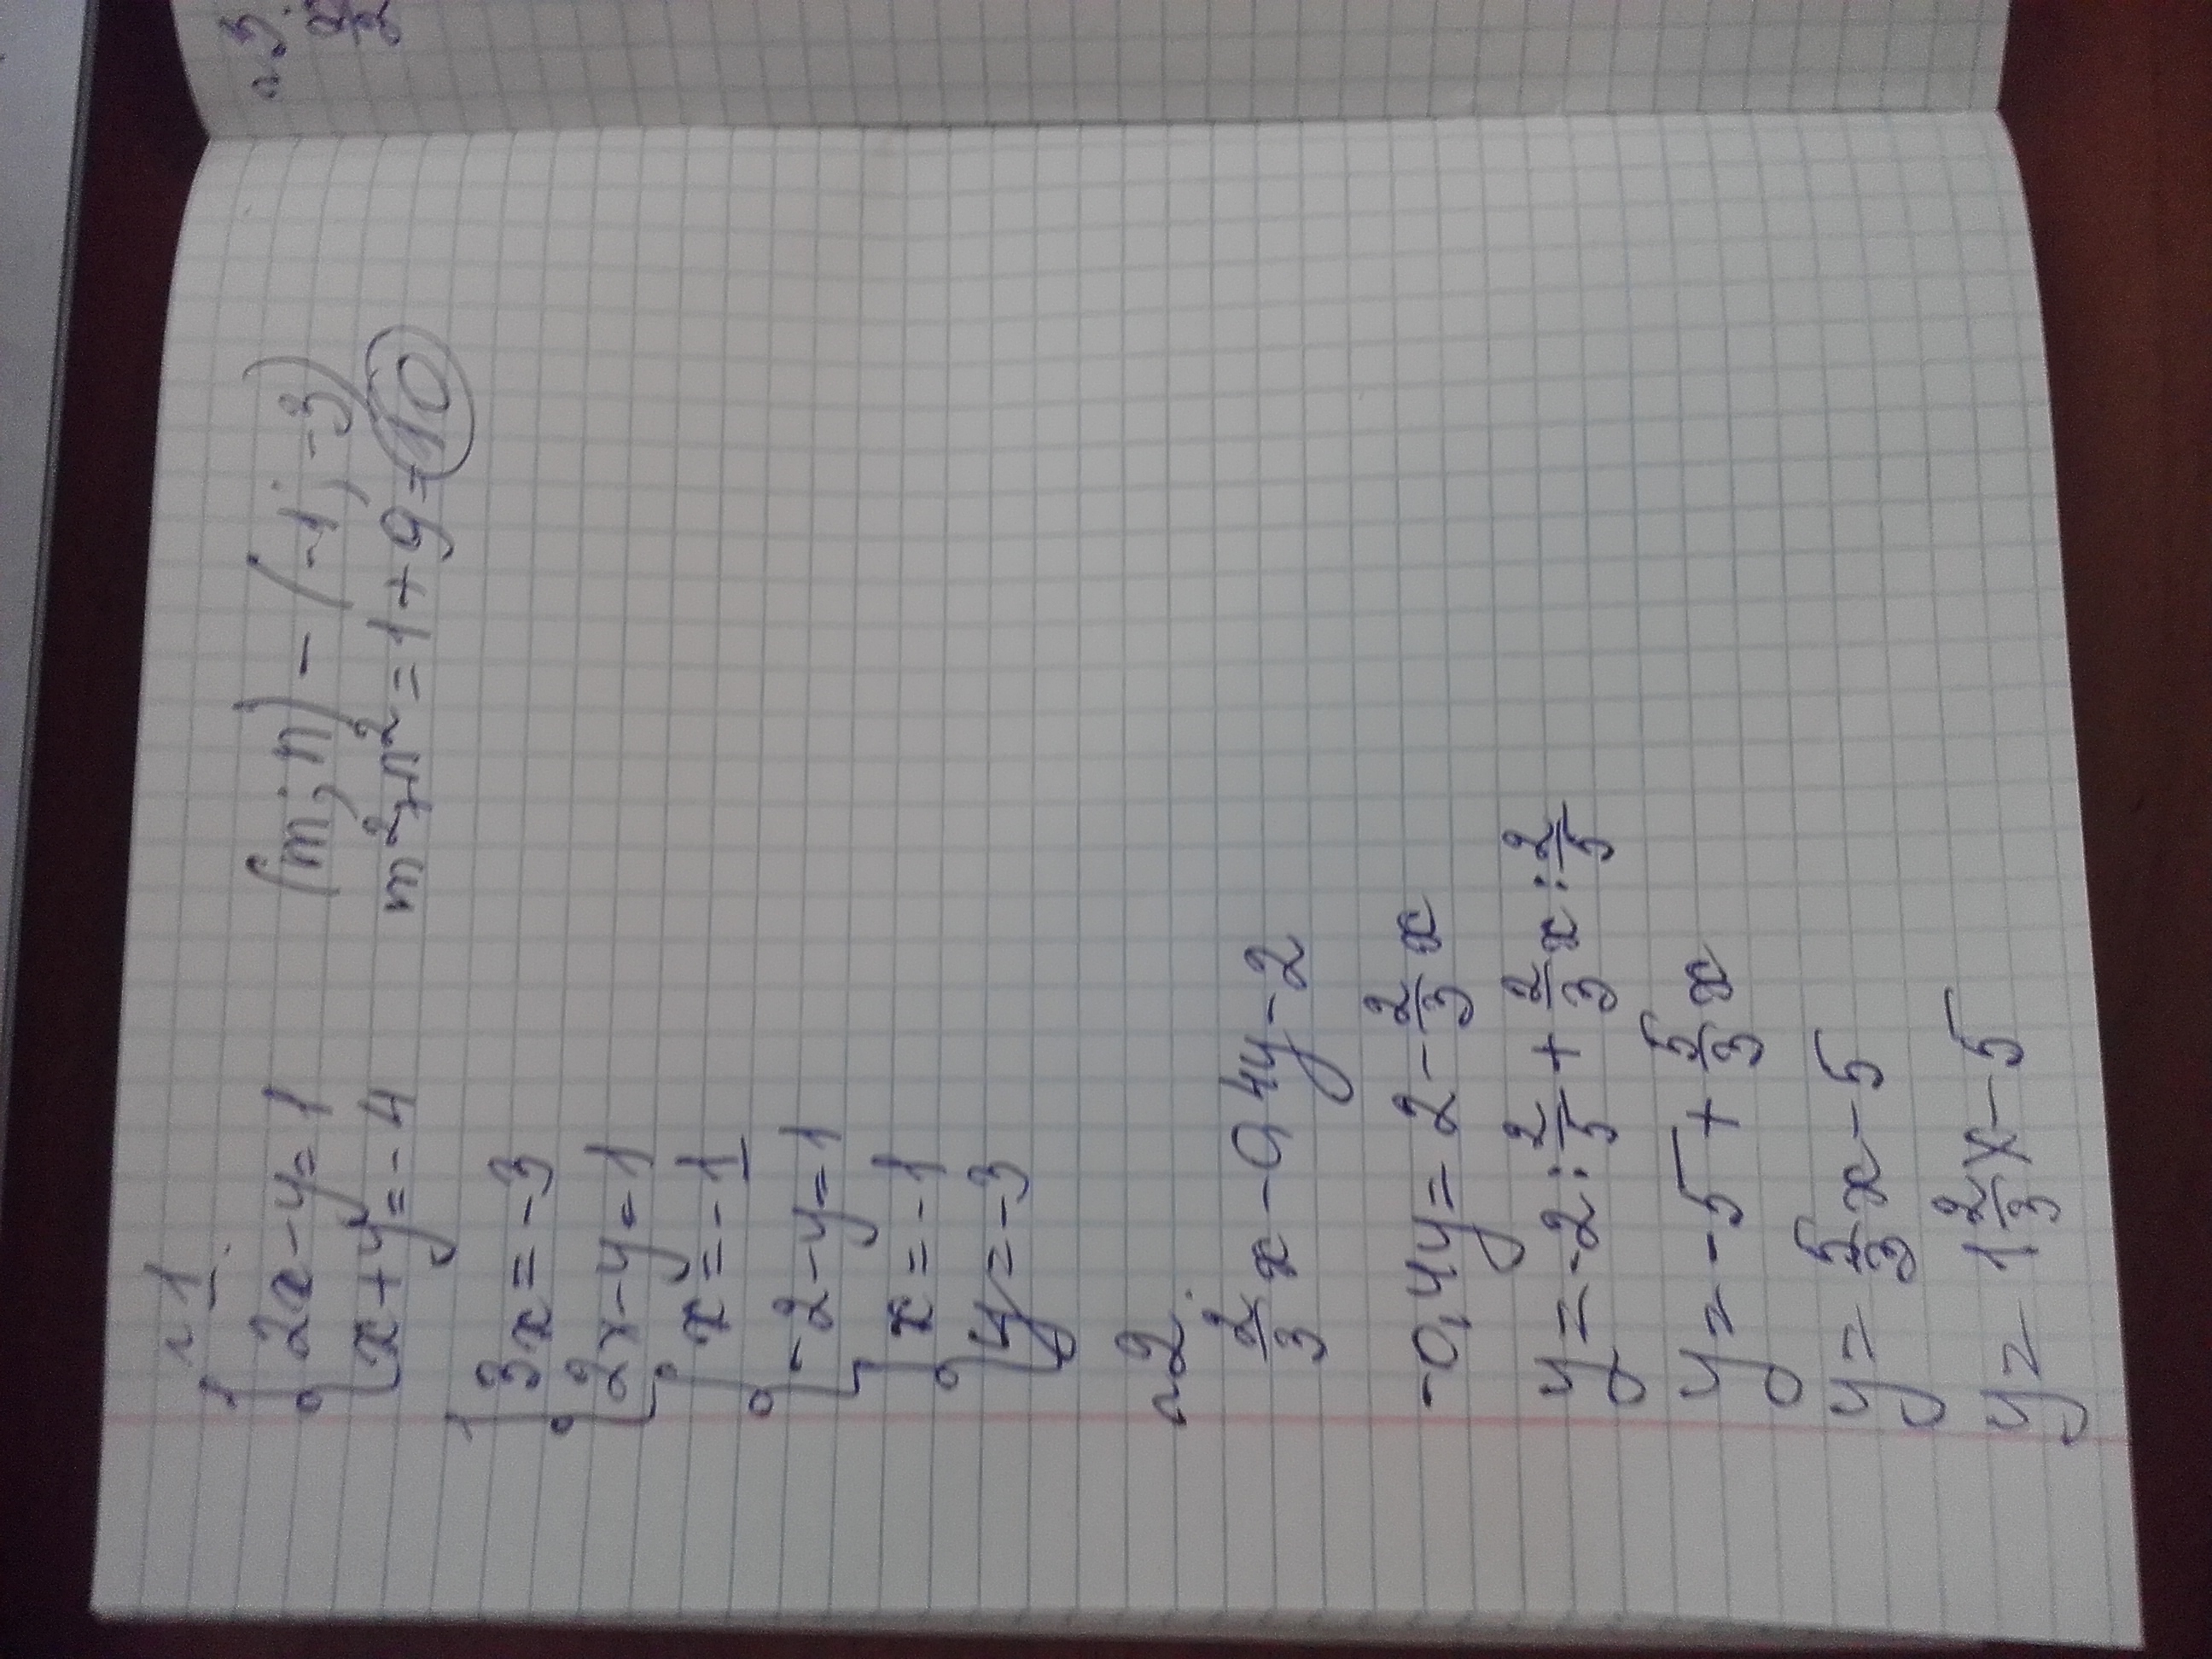 №1.
2x-y=1
x+y=-4
(m; n) - (-1; -3)
m²+n²=1+9=10
3x=-3
2x-y=1
x=-1
-2-y=1
x=-1
y=-3
№2.
2/3 x - 0,4y=2
-0,4y=2-2/3 x
y=-2:2/5+2/3 x:2/5
y=-5+5/3 x
y=5/3 x-5
y=1 2/3 x-5
№3.